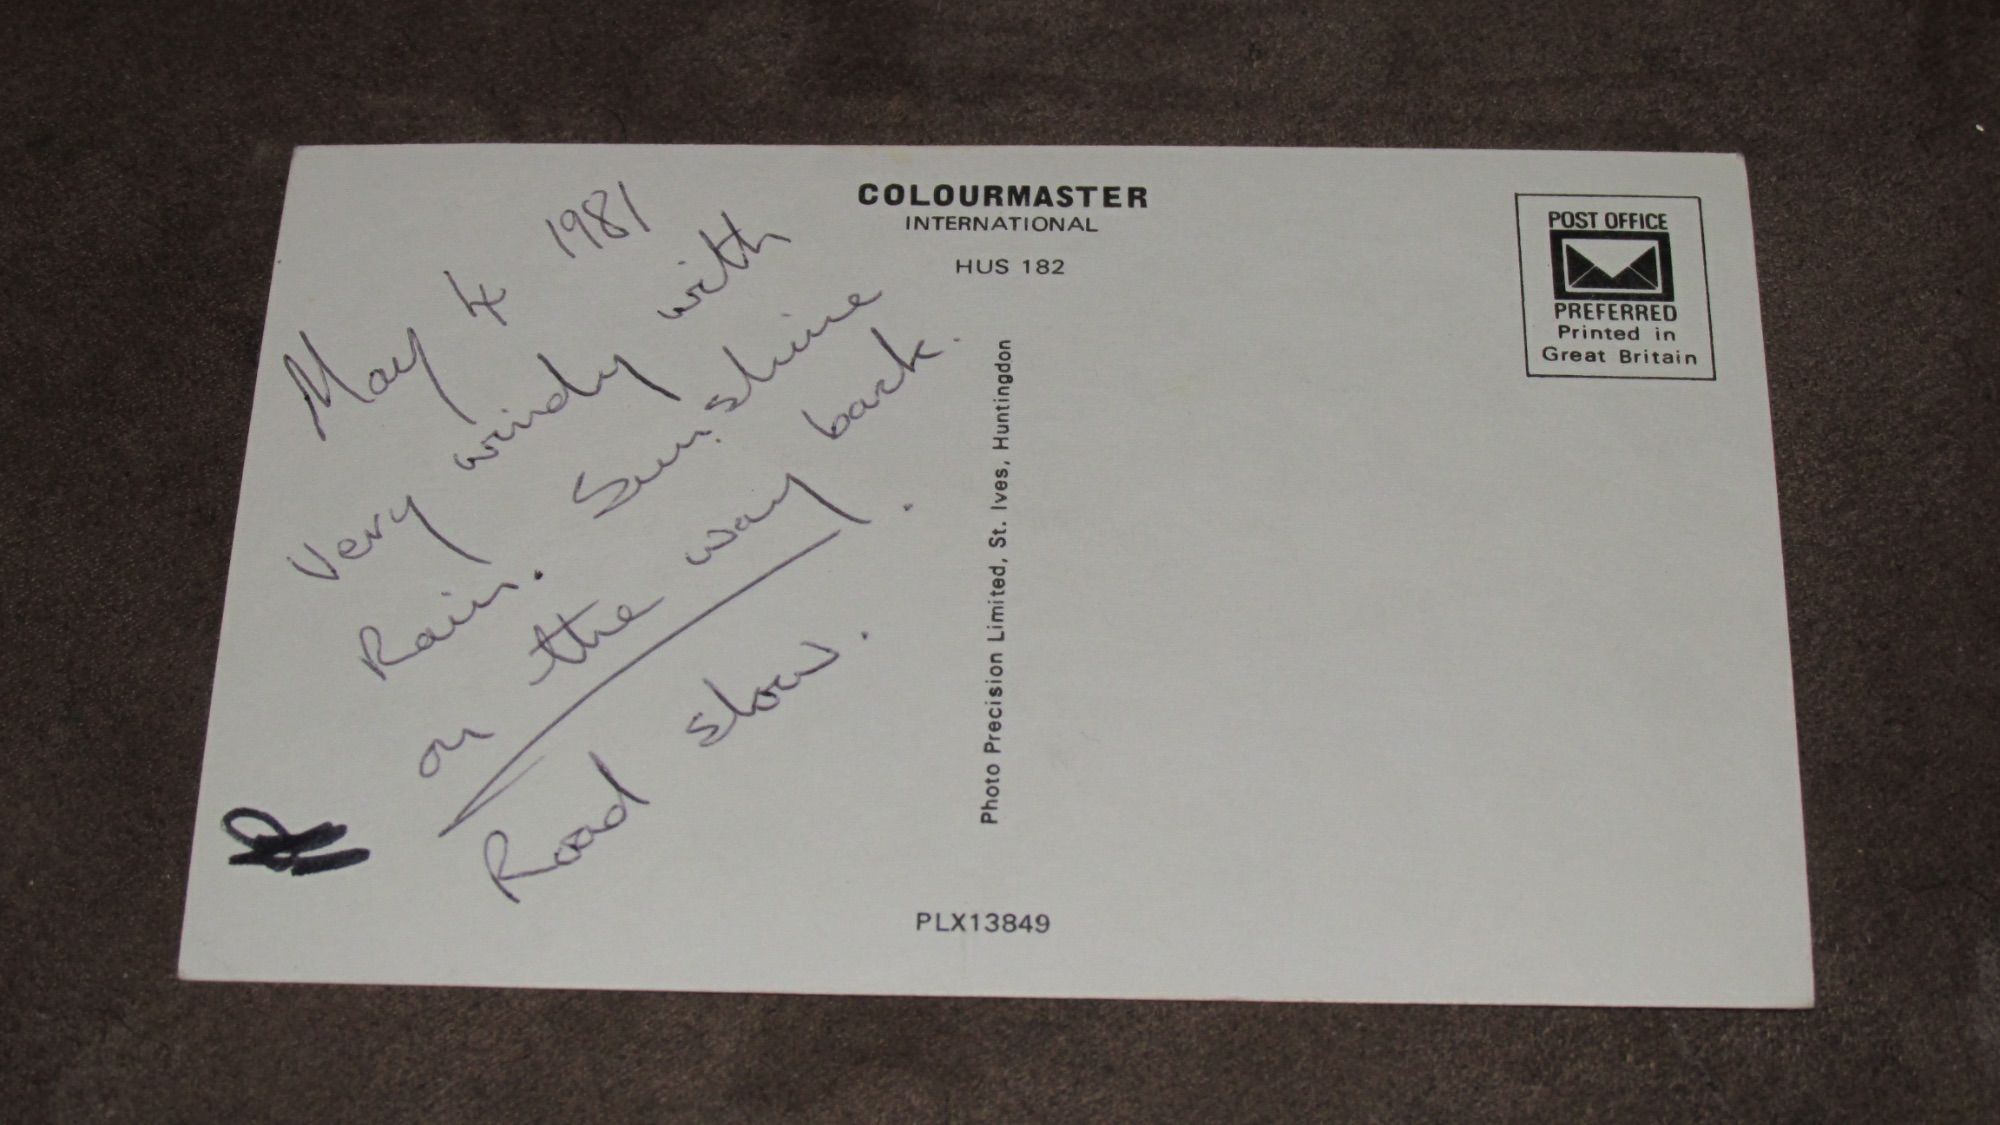 May 4 1981
Very windy with
Rain. Sunshine
on the way back.
Road slow.
COLOURMASTER
INTERNATIONAL
HUS 182
Photo Precision Limited, St. Ives, Huntingdon
PLX13849
POST OFFICE
PREFERRED
Printed in
Great Britain